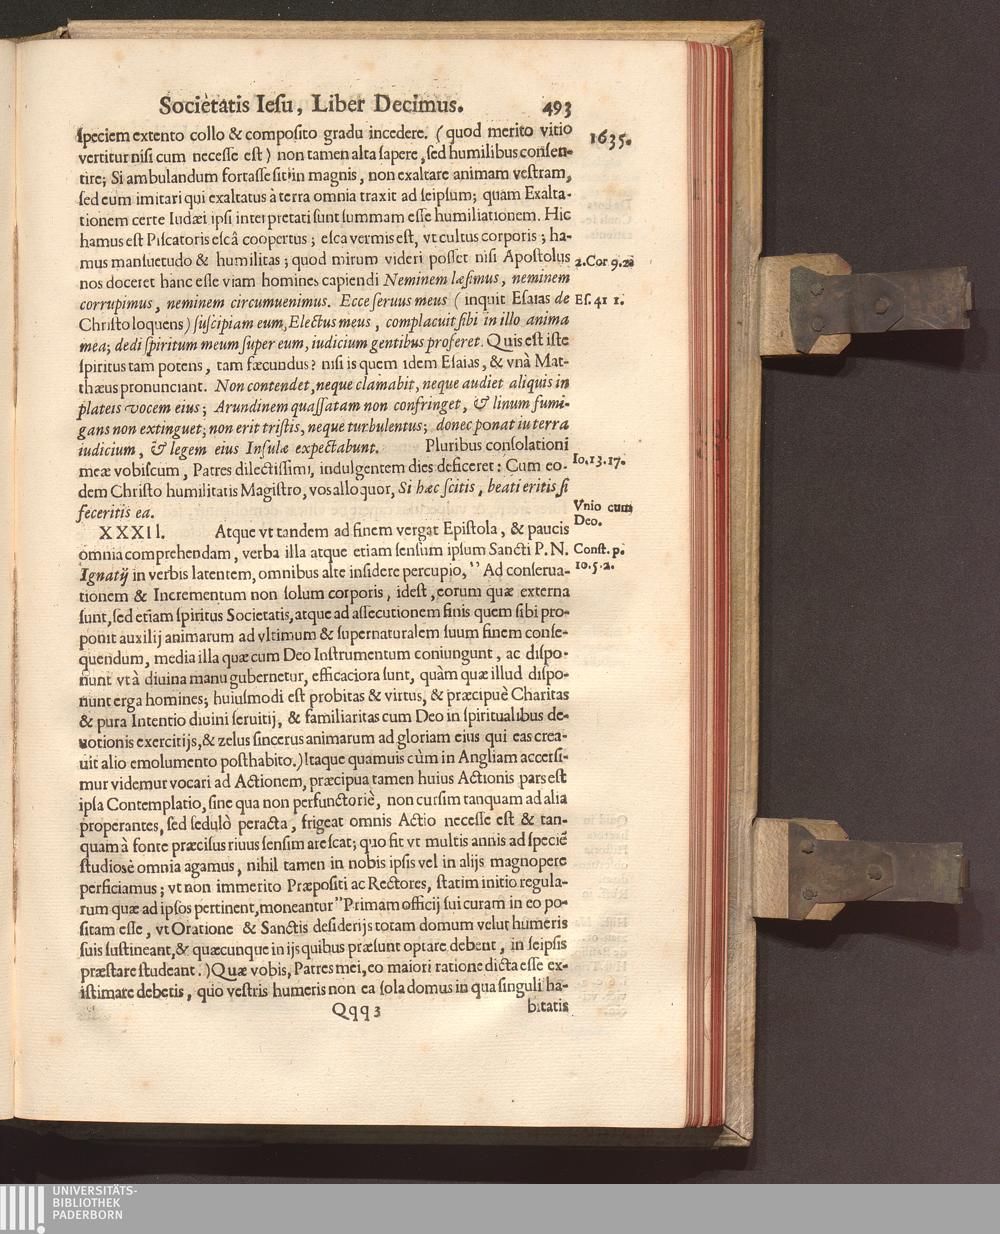 Societatis Iesu, Liber Decimus. 493
1635.
speciem extento collo & composito gradu incedere. (quod merito vitio
vertitur nisi cum necesse est) non tamen alta sapere, sed humilibus consen-
tire; Si ambulandum fortasse sit in magnis, non exaltare animam vestram,
sed eum imitari qui exaltatus à terra omnia traxit ad seipsum; quam Exalta-
tionem certe Iudæi ipsi interpretati sunt summam esse humiliationem. Hic
hamus est Piscatoris escâ coopertus; esca vermis est, vt cultus corporis; ha-
mus mansuetudo & humilitas; quod mirum videri posset nisi Apostolus
2.Cor 9.
nos doceret hanc esse viam homines capiendi Neminem læsimus, neminem
corrupimus, neminem circumuenimus. Ecce seruus meus (inquit Esaias de
Es. 41 1.
Christo loquens) suscipiam eum, Electus meus, complacuit sibi in illo anima
mea; dedi spiritum meum super eum, iudicium gentibus proferet. Quis est iste
spiritus tam potens, tam fæcundus? nisi is quem idem Esaias, & vnà Mat-
thæus pronunciant. Non contendet, neque clamabit, neque audiet aliquis in
plateis vocem eius; Arundinem quassatam non confringet, & linum fumi-
gans non extinguet; non erit tristis, neque turbulentus; donec ponat in terra
iudicium, & legem eius Insulæ expectabunt. Pluribus consolationi
meæ vobiscum, Patres dilectissimi, indulgentem dies deficeret: Cum eo-
Io.13.17.
dem Christo humilitatis Magistro, vos alloquor, Si hæc scitis, beati eritis si
feceritis ea.
Vnio cum
Deo.
XXXII. Atque vt tandem ad finem vergat Epistola, & paucis
omnia comprehendam, verba illa atque etiam sensum ipsum Sancti P. N.
Const. p.
10.5.2.
Ignatij in verbis latentem, omnibus alte insidere percupio, " Ad conserua-
tionem & Incrementum non solum corporis, idest, eorum quæ externa
sunt, sed etiam spiritus Societatis, atque ad assecutionem finis quem sibi pro-
ponit auxilij animarum ad vltimum & supernaturalem suum finem conse-
quendum, media illa quæ cum Deo Instrumentum coniungunt, ac dispo-
nunt vt à diuina manu gubernetur, efficaciora sunt, quàm quæ illud dispo-
nunt erga homines; huiusmodi est probitas & virtus, & præcipuè Charitas
& pura Intentio diuini seruitij, & familiaritas cum Deo in spiritualibus de-
uotionis exercitijs, & zelus sincerus animarum ad gloriam eius qui eas crea-
uit alio emolumento posthabito.) Itaque quamuis cùm in Angliam accersi-
mur videmur vocari ad Actionem, præcipua tamen huius Actionis pars est
ipsa Contemplatio, sine qua non perfunctoriè, non cursim tanquam ad alia
properantes, sed sedulò peracta, frigeat omnis Actio necesse est & tan-
quam à fonte præcisus riuus sensim arescat; quo fit vt multis annis ad speciē
studiosè omnia agamus, nihil tamen in nobis ipsis vel in alijs magnopere
perficiamus; vt non immerito Præpositi ac Rectores, statim initio regula-
rum quæ ad ipsos pertinent, moneantur "Primam officij sui curam in eo po-
sitam esse, vt Oratione & Sanctis desiderijs totam domum velut humeris
suis sustineant, & quæcunque in ijs quibus præsunt optare debent, in seipsis
præstare studeant.) Quæ vobis, Patres mei, eo maiori ratione dicta esse ex-
istimare debetis, quo vestris humeris non ea sola domus in qua singuli ha-
Qqq 3 bitatis
UNIVERSITÄTS-
BIBLIOTHEK
PADERBORN